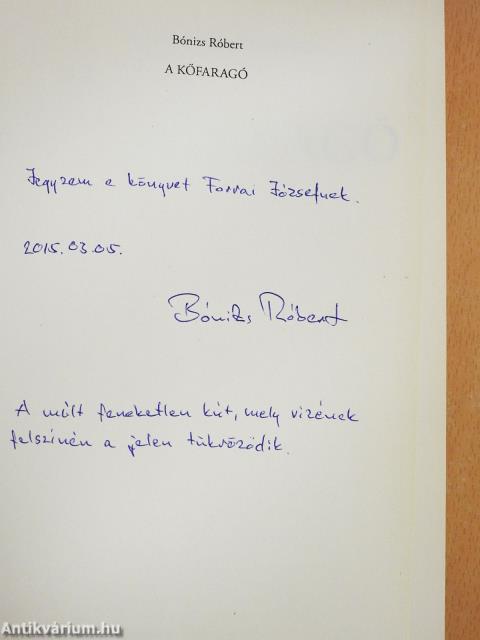 Bónizs Róbert
A KŐFARAGÓ
Jegyzem e könyvet Forrai Józsefnek.
2015.03.05.
Bónizs Róbert
A múlt feneketlen kút, mely vizének
felszínén a jelen tükröződik.
Antikvárium.hu